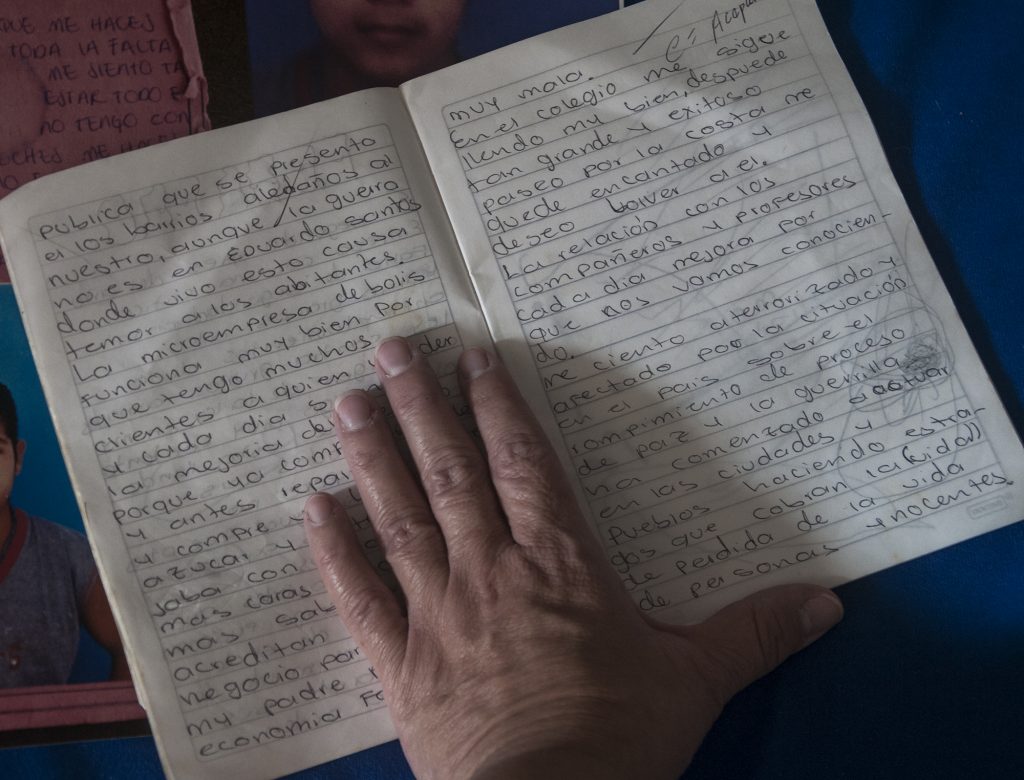 QUE ME HACES
TODA LA FALTA
ME SIENTO TA
ESTAR TODO E
NO TENGO CON
publica que se presento
en los barrios aledaños al
nuestro, aunque la guerra
no es en Eduardo Santos
donde vivo esto causa
temor a los abitantes.
La microempresa de bolis
funciona muy bien por
que tengo muchos
clientes a quien der
y cada dia s
la mejoria de
porque ya comp
y antes repar
y compre y
azucar y
saba con
mas caras
mas sab
acreditan
negocio por
my padre
economia Fa
muy mala.
En el colegio me sigue
llendo muy bien, despuede
tan grande y exitoso
paseo por la costa me
quede encantado y
deseo bolver a el.
La relación con los
compañeros y profesores
cada dia mejora por
que nos vamos conocien-
do.
me ciento aterrorizado y
afectado por la cituación
en el pais sobre el
rompimiento de proceso
de paz y la guerilla
ha comenzado a actuar
en las ciudades y
pueblos haciendo estra-
gos que cobran la (vida)
de perdida de la vida
de personas ynocentes.